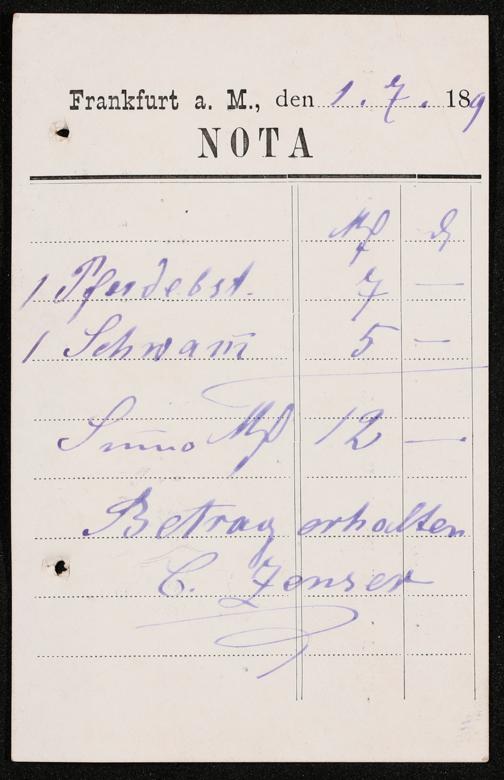 Frankfurt a. M., den 1. 7. 189
NOTA
Mk ₰
1 Pferdebst. 7 —
1 Schwam̅ 5 —
Sum̅a Mk 12 —
Betrag erhalten
C. Jenser